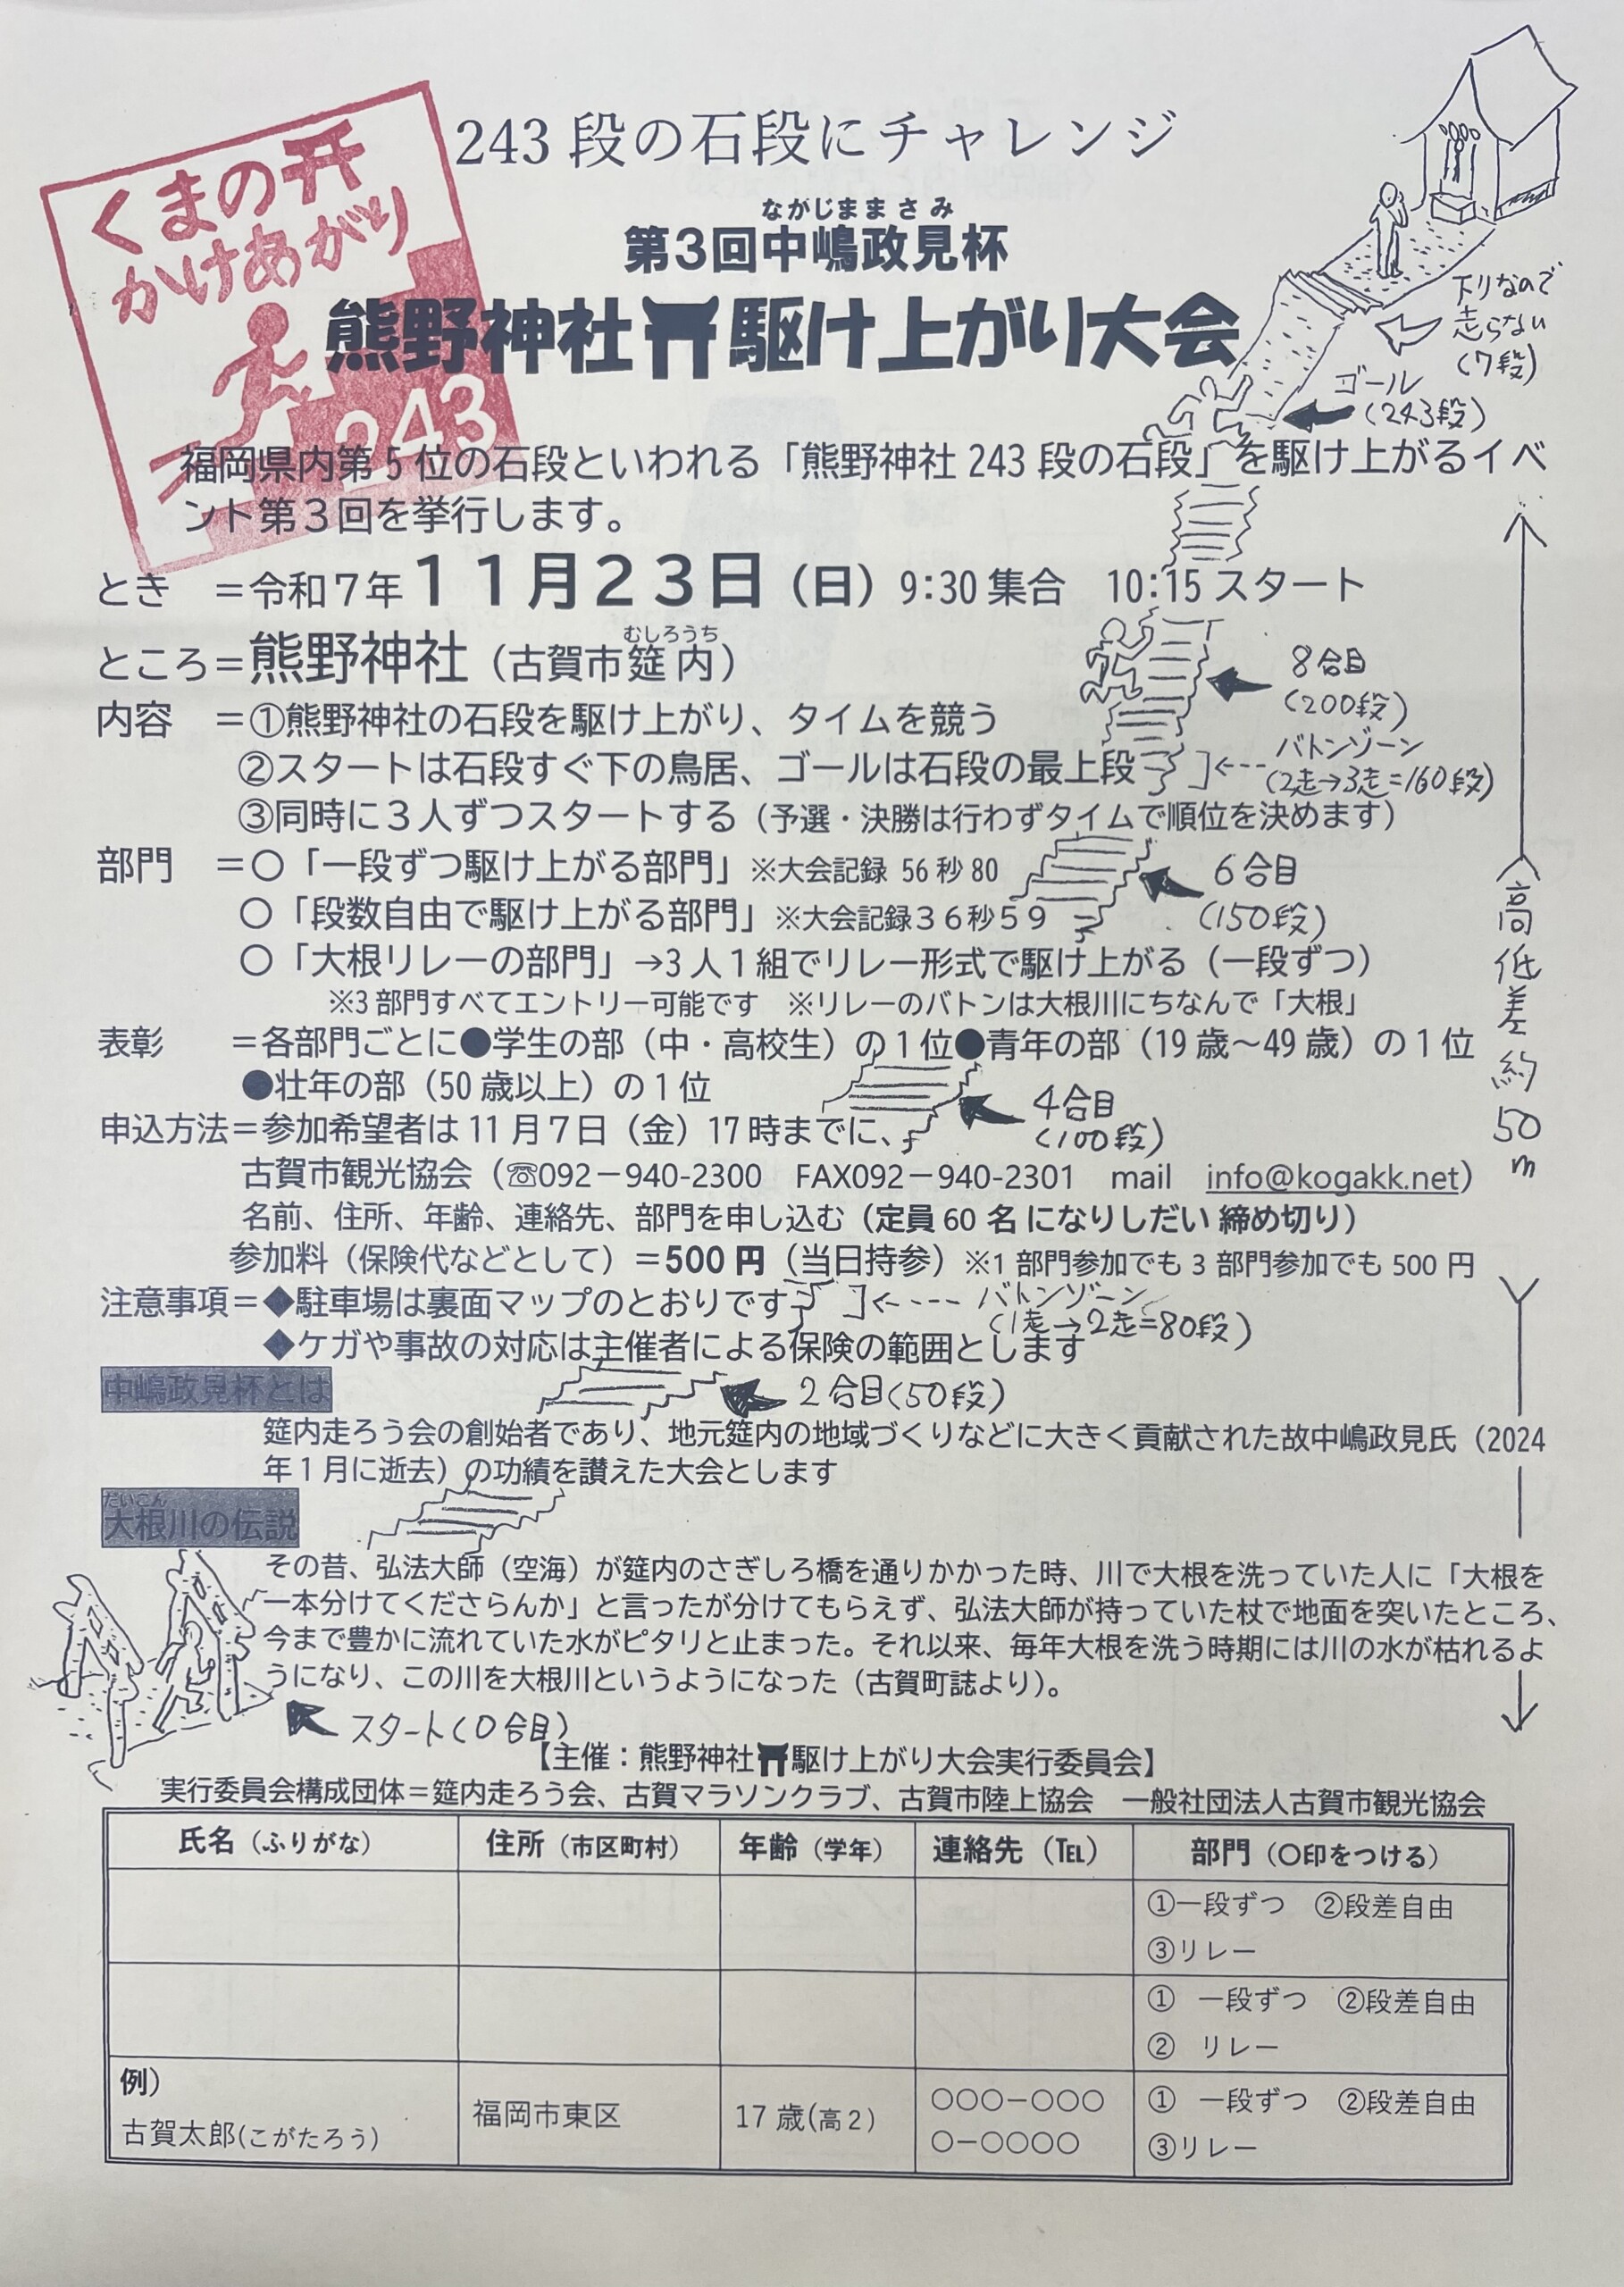 くまの
かけあがり
243
243段の石段にチャレンジ
ながじままさみ
第3回中嶋政見杯
熊野神社⛩駆け上がり大会
下りなので
走らない
(7段)
ゴール
(243段)
福岡県内第5位の石段といわれる「熊野神社243段の石段」を駆け上がるイベ
ント第3回を挙行します。
とき　＝令和7年11月23日（日）9:30集合　10:15スタート
むしろうち
ところ＝熊野神社（古賀市筵内）
8合目
(200段)
内容　＝①熊野神社の石段を駆け上がり、タイムを競う
②スタートは石段すぐ下の鳥居、ゴールは石段の最上段
バトンゾーン
(2走→3走=160段)
③同時に3人ずつスタートする（予選・決勝は行わずタイムで順位を決めます）
部門　＝〇「一段ずつ駆け上がる部門」※大会記録 56秒80
6合目
(150段)
〇「段数自由で駆け上がる部門」※大会記録36秒59
〇「大根リレーの部門」→3人1組でリレー形式で駆け上がる（一段ずつ）
※3部門すべてエントリー可能です　※リレーのバトンは大根川にちなんで「大根」
高低差約50m
表彰　＝各部門ごとに●学生の部（中・高校生）の1位●青年の部（19歳～49歳）の1位
●壮年の部（50歳以上）の1位
4合目
(100段)
申込方法＝参加希望者は11月7日（金）17時までに、
古賀市観光協会（☏092－940-2300　FAX092－940-2301　mail　info@kogakk.net）
名前、住所、年齢、連絡先、部門を申し込む（定員60名になりしだい締め切り）
参加料（保険代などとして）＝500円（当日持参）※1部門参加でも3部門参加でも500円
注意事項＝◆駐車場は裏面マップのとおりです
バトンゾーン
(1走→2走=80段)
◆ケガや事故の対応は主催者による保険の範囲とします
中嶋政見杯とは
2合目(50段)
筵内走ろう会の創始者であり、地元筵内の地域づくりなどに大きく貢献された故中嶋政見氏（2024
年1月に逝去）の功績を讃えた大会とします
だいこん
大根川の伝説
その昔、弘法大師（空海）が筵内のさぎしろ橋を通りかかった時、川で大根を洗っていた人に「大根を
一本分けてくださらんか」と言ったが分けてもらえず、弘法大師が持っていた杖で地面を突いたところ、
今まで豊かに流れていた水がピタリと止まった。それ以来、毎年大根を洗う時期には川の水が枯れるよ
うになり、この川を大根川というようになった（古賀町誌より）。
スタート(0合目)
【主催：熊野神社⛩駆け上がり大会実行委員会】
実行委員会構成団体＝筵内走ろう会、古賀マラソンクラブ、古賀市陸上協会　一般社団法人古賀市観光協会
氏名（ふりがな）　住所（市区町村）　年齢（学年）　連絡先（℡）　部門（〇印をつける）
①一段ずつ　②段差自由
③リレー
①　一段ずつ　②段差自由
②　リレー
例）
古賀太郎(こがたろう)　福岡市東区　17歳(高2)　〇〇〇－〇〇〇
〇－〇〇〇〇
①　一段ずつ　②段差自由
③リレー